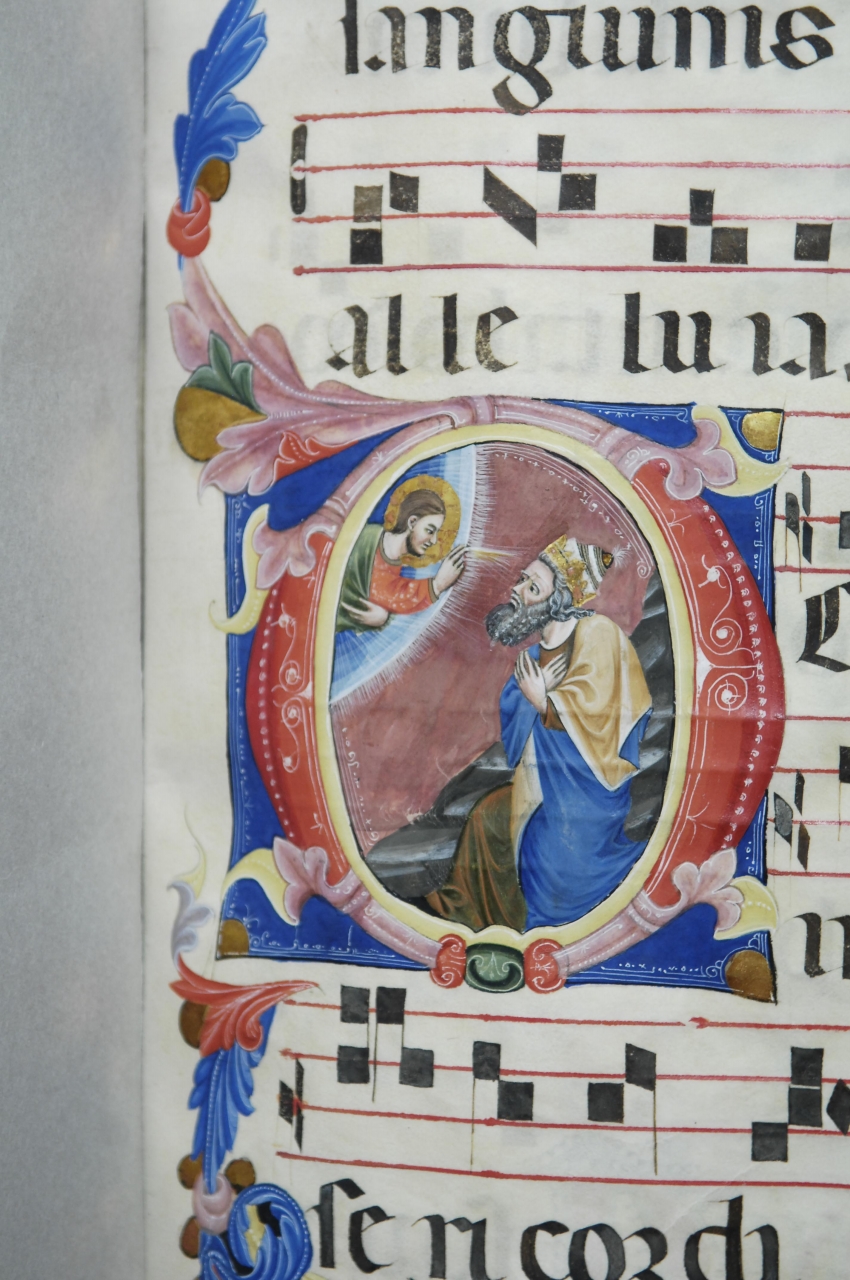 sanguinis
alle luia.
se ri cordi